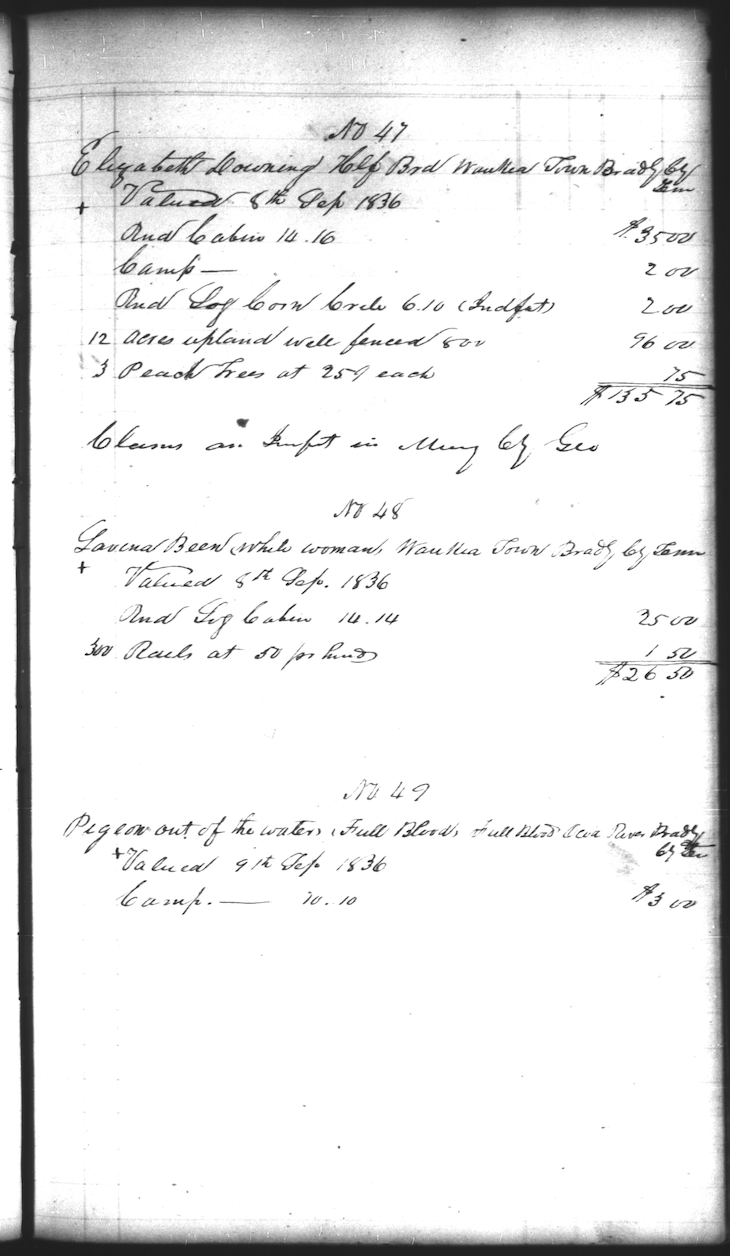 No 47
Elizabeth Downing Hlf Brd Waukea Town Bradly Cty
Ten
+ Valued 8th Sep 1836
Rnd Cabin 14.16 $35 00
Camp — 2 00
Rnd Log Corn Crib 6.10 (Indfrt) 2 00
12 acres upland well fenced 800 96 00
3 Peach Trees at 25 each 75
$135 75
Claims an Impt in Murry Cty Geo
No 48
Lavina Been (white woman) Waukea Town Bradly Cty Tenn
+ Valued 8th Sep. 1836
Rnd Log Cabin 14.14 25 00
300 Rails at 50 pr hund 1 50
$26 50
No 49
Pigeon out of the water (Full Blood) Full Blood Ocoa River Bradly
Cty Ten
+ Valued 9th Sep 1836
Camp. — 10.10 $3 00